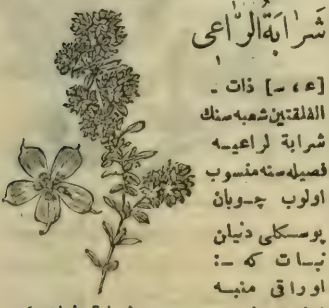 شَرابَةُالرَّاعِى
[ع ، ـ] ذات .
الفلقتين شعبه سنك
شرابة لراعيـه
فصيله سنه منسوب
اولوب چـوبان
پوسـكلى دنيلن
نبـات كه ـ:
اوراقى منبـه